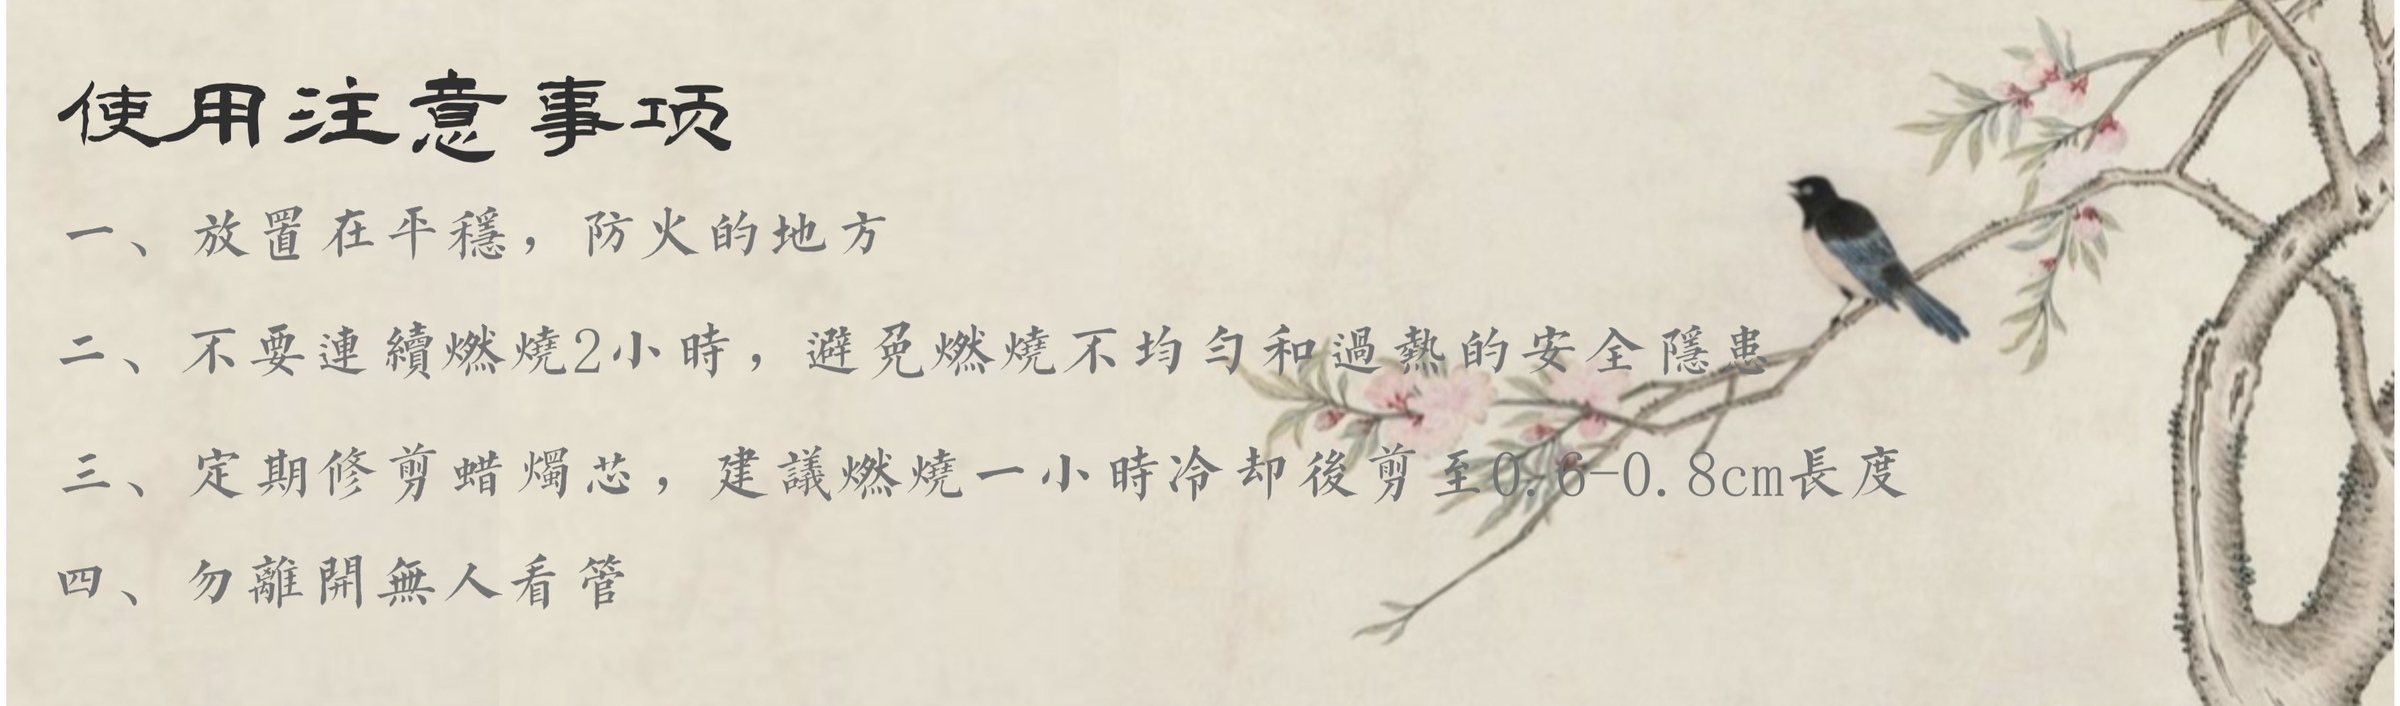 使用注意事项
一、放置在平穩，防火的地方
二、不要連續燃燒2小時，避免燃燒不均勻和過熱的安全隱患
三、定期修剪蜡燭芯，建議燃燒一小時冷却後剪至0.6-0.8cm長度
四、勿離開無人看管